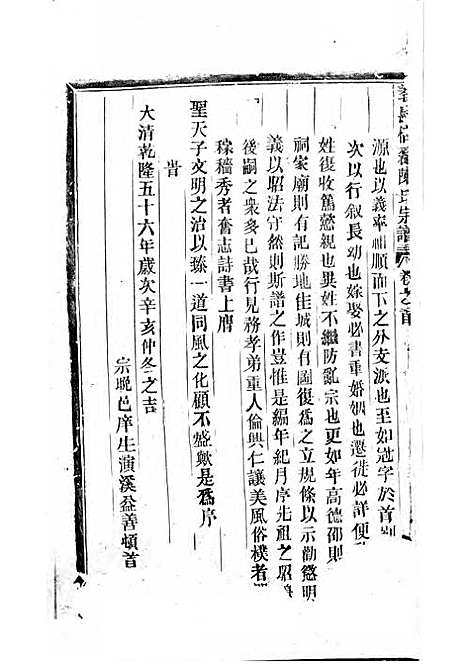 宗譜 卷之首
源也以義率祖順而下之外支派也至如冠字於首別
次以行叙長幼也嫁娶必書重婚姻也遷徙必詳便
姓復收篤懿親也異姓不繼防亂宗也更如年高德邵則
祠家廟則有記勝地佳城則有圖復為之立規條以示勸懲明
義以昭法守然則斯譜之作豈惟是編年紀月序先祖之昭
後嗣之衆多已哉行見務孝弟重人倫興仁讓美風俗樸者
稼穡秀者奮志詩書上膺
聖天子文明之治以臻一道同風之化顧不盛歟是為序
旹
大清乾隆五十六年歲次辛亥仲冬之吉
宗晚邑庠生演溪益善頓首